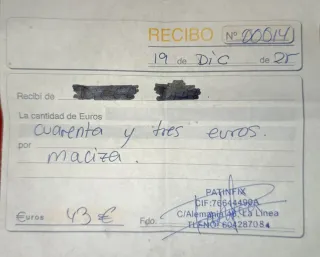 RECIBO Nº 00014
19 de Dic de 25
Recibí de
La cantidad de Euros
cuarenta y tres euros.
por maciza.
PATINFIX
CIF:76644490S
C/Alemania 48, La Línea
TLFNO: 604287084
Euros 43 € Fdo.